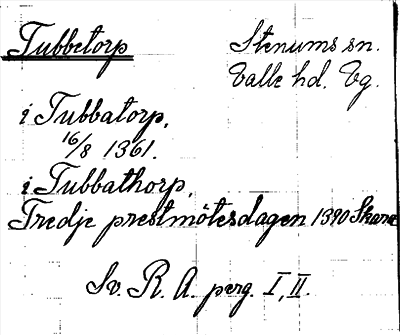 Tubbetorp Stenums sn.
Valle hd. Vg.
i Tubbatorp,
16/8 1361.
i Tubbathorp,
Tredje prestmötesdagen 1390 Skara
Sv. R. A. perg. I, II.